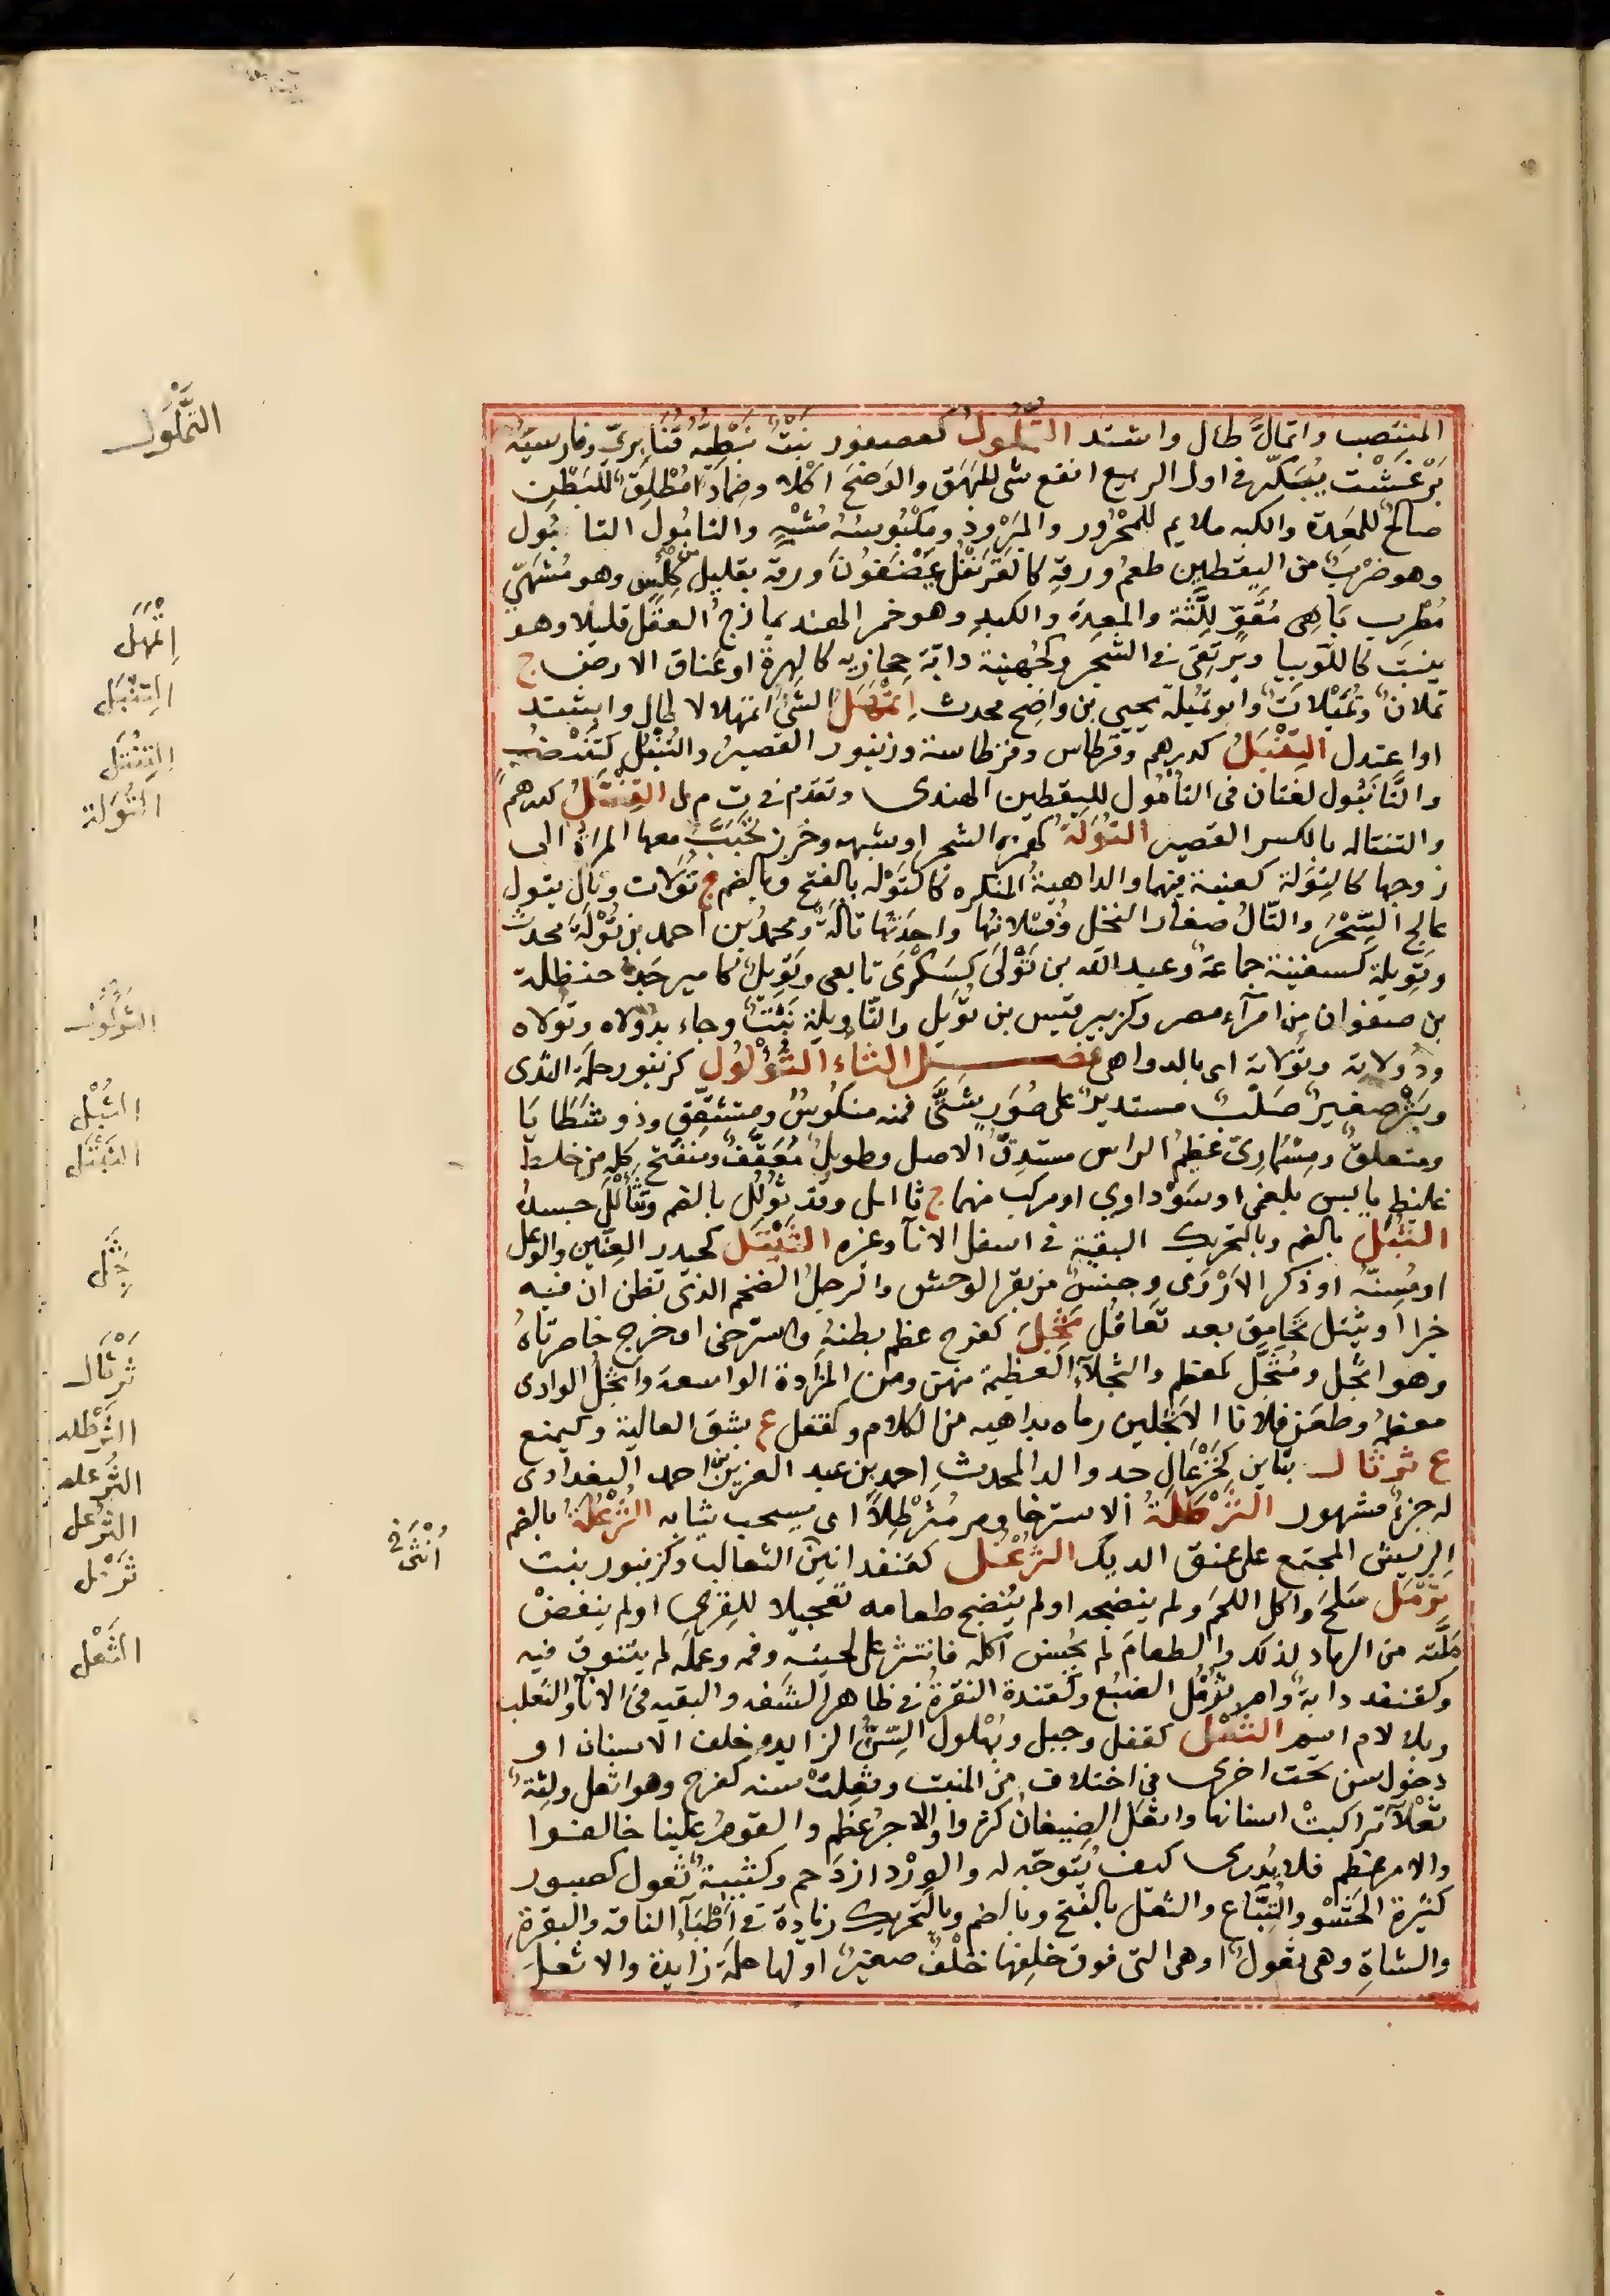 المنتصب واتمألّ طال واشتد التُّمْلُول كعصفور نبْتٌ نَبَطِيَّهُ قُنَّابَرِيّ وفارسيته
بَرْغَسْت يُبَكِّر في اول الربيع انفع شي للبَهَق والوَضَح اكلا وضمادا مُطْلِقٌ للبَطْن
صالحٌ للمَعِدة والكبد ملايم للمَحْرُور والمَبْرُود ومَكْبُوسُه مُشَهٍّ والتامُول التانبُول
وهو ضَرْبٌ من اليَقطين طعمُ ورقه كالقَرَنْفُل يَمْضَغُونَ ورقه بقليل من كِلْسٍ وهو مُشَهٍّ
مُطْرِب بَاهِيّ مُقَوٍّ لِلِّثَةِ والمعِدة والكبِدِ وهو خمر الهند يمازج العقل قليلا وهو
ينبت كاللّوبيا ويرتقى في الشجر وكجُهَينة دابّة حجازيه كالهرة او عَناق الارض ج
تملان وتُمَيْلات وابو تُمَيْلَة يحيى بن واضح محدث اِتْمَهَلَّ الشيُ اتمهلالا طال واشتد
او اعتدل التِنْبَلُ كدرهم وقِرْطاس وقِرْطاسة وزنبور القصيرُ والتُنْبُل كتَنْضُب
والتَّانبُول لغتان في التامُول لليقطين الهندى وتقدم في ت م ل التِنْتَلُ كدرهم
والتنتاله بالكسر القصير التُوَلَة كهمزه السحر او شبهه وخَرز تُحَبَّبُ معها المراة الى
زوجها كالتِوَلة كعِنبة فيهما والداهيةُ المنكره كالتَوْلَه بالفتح وبالضم ج تُوَلات وتال يتول
عالج السِّحْرَ والتّالُ صغار النخل وفُسْلانُها واحدتُها تالَةٌ ومحمدُ بن احمد بن تُوْلَةَ محدث
وتَوِيلة كسفينة جماعةٌ وعبد الله بن تَوْلَى كسَكْرَى تابعى وتَوِيلٌ كامير جَدّ حنظلة
بن صفوان من امرآء مصر وكزبير قيس بن تُوَيل والتّاويلة نَبْتٌ وجاء بدولاه وتولاه
ودُولاته وتُولاته اى بالدواهى فصـــل الثاء الثُّؤْلُول كزنبور حلمة الثدى
وبَثْرٌ صغيرٌ صَلْبٌ مستديرٌ على صُوَرٍ شَتَّى فمنه منكُوسٌ ومتشقّق وذو شَظايَا
ومتعلقٌ ومِسْمارِيّ عظيمُ الراس مستدِقّ الاصل وطويلٌ مُعَقَّفٌ ومنفتح كله من خلط
غليظ يابس بلغمى او سَوْداوى او مركب منهما ج ثاليل وقد ثُولِل بالضم وتَثَأْلَلَ جسده
الثُّبْلُ بالضم وبالتحريك البقية في اسفل الانآ وغره الثَّيْتَل كحيدر العِنّين والوعل
او مُسِنّه او ذكر الاَرْوَى وجنسٌ من بقر الوحش والرجلُ الضخم الذى تظن ان فيه
خيرا وثيتل تحامق بعد تعاقُل ثَجِلَ كفرح عظم بطنهُ واسترخى او خرج خاصرتاهُ
وهو اثجل ومُثَجَّل كمعظم والثجلآء العظيمة منهن ومن المزادة الواسعة واثجُلُ الوادى
معظمهُ وطعَن فلانا الاثجلَين رماه بداهيه من الكلام وكقفل ع بشق العالية وكيمنع
ع ثرثال بثاءين كخَزْعَالٍ جد والد المحدث احمد بن عبد العزيز بن احمد البغدادى
له جزءٌ مشهور الثَّرْطَلَةُ الاسترخا ومر مُثَرْطِلاً اى يسحب ثيابه الثُّرْعُلَة بالضم
الريش المجتمع على عنق الديك الثُّرْغُل كقنفذ انثى الثعالب وكزنبور نبت
ثَرْمَلَ سَلَحَ واكل اللحمَ ولم ينضجه او لم يُنْضِج طعامه تعجيلا للقِرى او لم ينفضْ
مَلَّته من الرماد لذلك والطعامَ لم يُحْسِن اكله فانتثر على لحيته وفمه وعمَلَه لم يتنوق فيه
وكقنفذ دابةٌ وام ثُرْمُل الضبُع وكقُنفذة النقرةُ في ظاهر الشفه والبقيه في الانآ والثعلب
وبلا لام اسم الثُّعْل كقفل وجبل وبُهلول السِّنُّ الزايده خلف الاسنان او
دخول سن تحت اخرى في اختلاف من المنبت وثَعِلتْ سنه كفرح وهو اثعل ولِثَةٌ
ثَعْلاَءُ تراكبتْ اسنانها واثعَل الضيفانُ كثروا والاجرُ عظم والقومُ علينا خالفوا
والامر عظم فلا يُدرى كيف يُتَوجّه له والوِرْد ازدَحم وكتيبةٌ ثَعول كصبور
كثيرة الحَشْو والتُبّاع والثعل بالفتح وبالضم وبالتحريك زيادة في اَطْبَآءِ الناقه والبقرةِ
والشاةِ وهى ثعولٌ او هى التى فوق خلفها خلْفٌ صغيرٌ اولها حلمة زايدة والاثعل
التُّمْلُول
اِتْمَهَلَّ
التِنْبَل
التِنْتَل
التُوَلة
الثُّولُول
الثُبْل
الثَيْتَل
ثَجِل
ثَرْثال
الثرطله
الثرعله
الثرغل
أُنْثَى
ثَرْمَل
الثُعْل